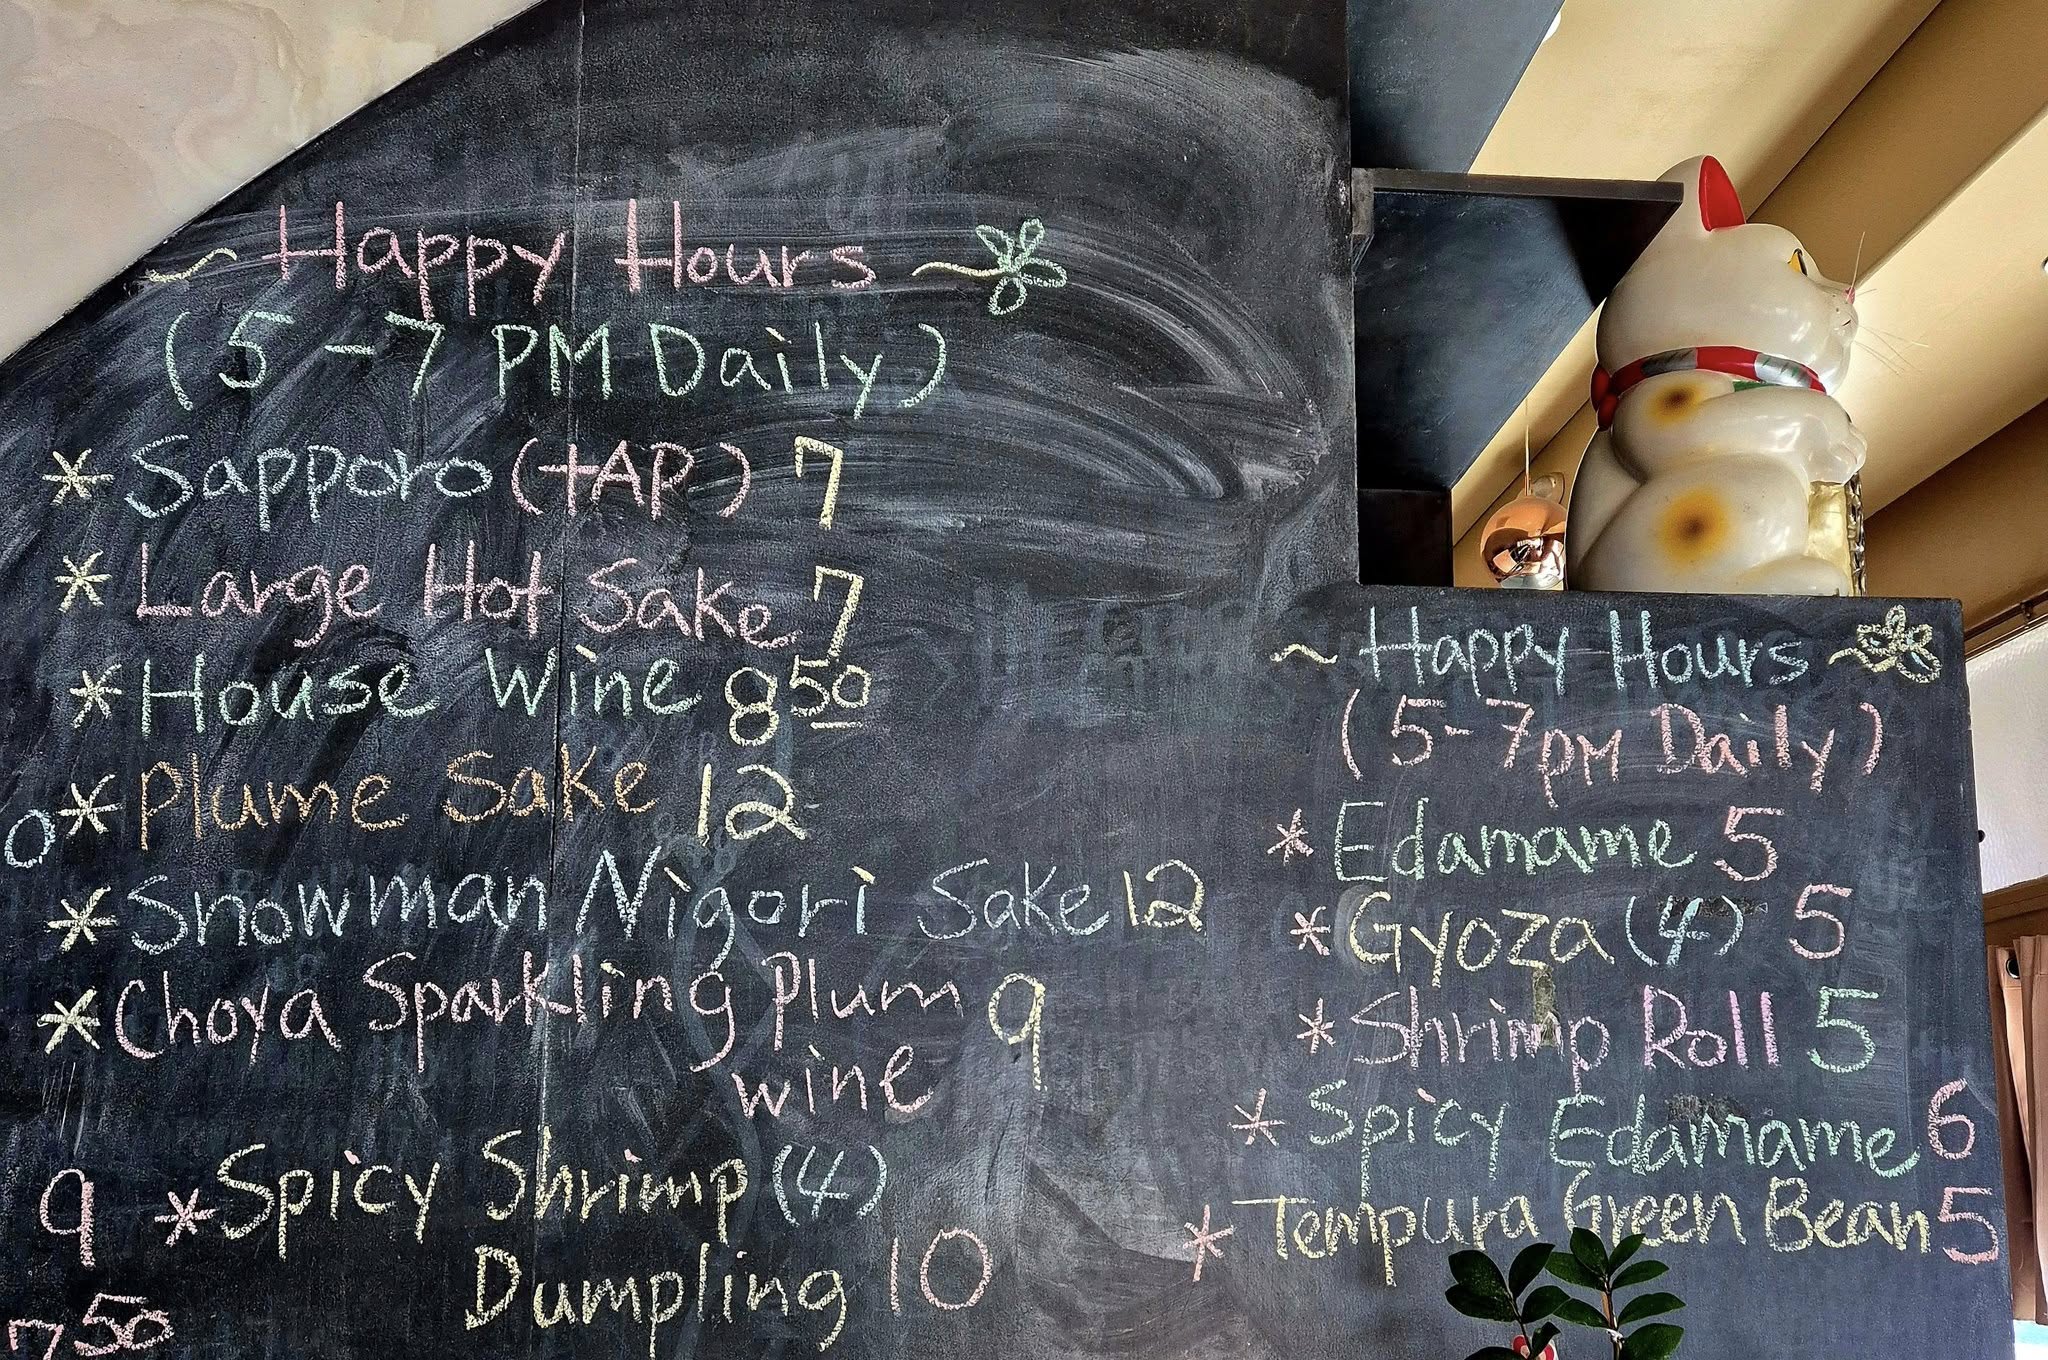 ~ Happy Hours ~
(5-7 PM Daily)
* Sapporo (tAP) 7
* Large Hot Sake 7
* House Wine 8 50
* Plume Sake 12
0
* Snowman Nigori Sake 12
* Choya Sparkling Plum 9
wine
9
* Spicy Shrimp (4)
Dumpling 10
7 50
~ Happy Hours ~
(5-7pm Daily)
* Edamame 5
* Gyoza (4) 5
* Shrimp Roll 5
* Spicy Edamame 6
* Tempura Green Bean 5